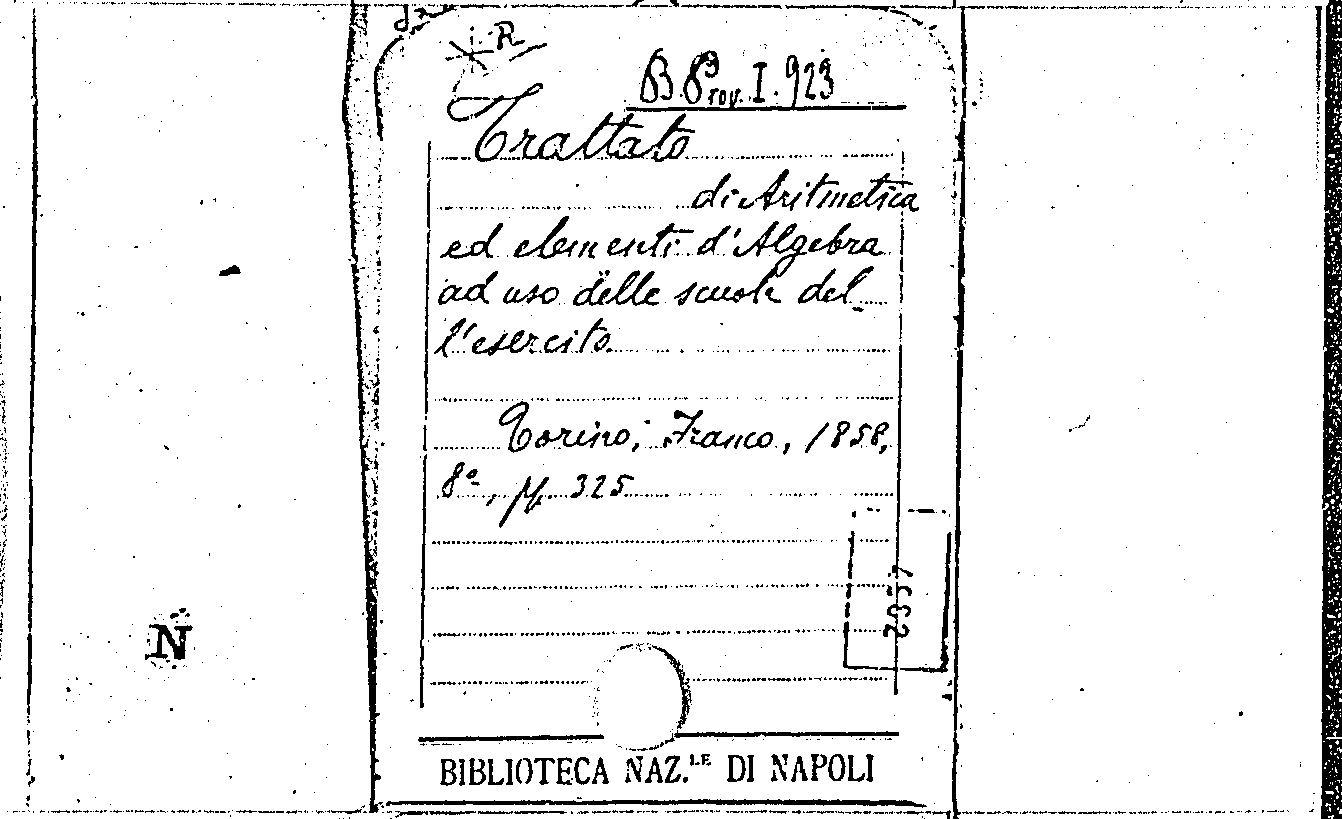 R
B. Prov. I. 923
Trattato
di Aritmetica
ed elementi d'Algebra
ad uso delle scuole del
l'esercito.
Torino, Franco, 1858,
8º, pp. 325
2957
N
BIBLIOTECA NAZ.LE DI NAPOLI